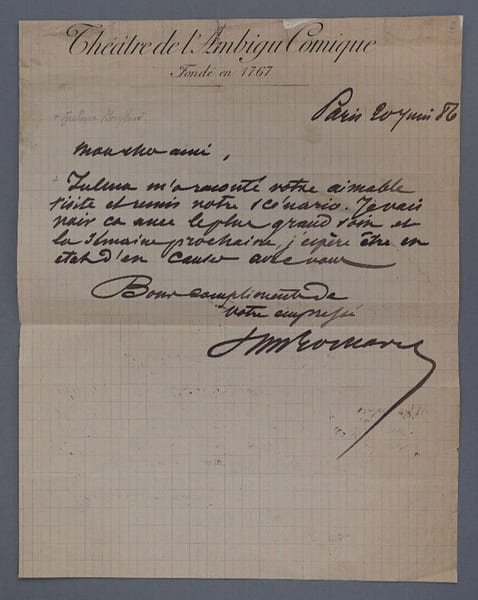 Théâtre de l'Ambigu Comique
Fondé en 1767
Paris 20 juin 86
Mon cher ami,
+ Zulma m'a raconté votre aimable
visite et remis notre scénario. Je vais
voir ça avec le plus grand soin et
la semaine prochaine, j'espère être en
état d'en causer avec vous
Bons compliments de
votre empressé